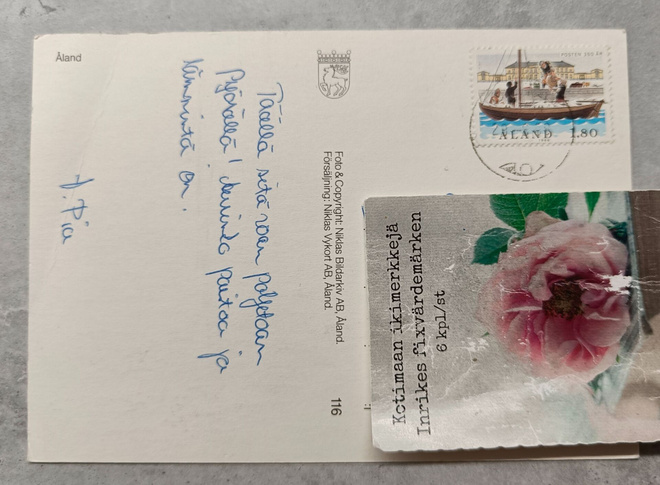 Åland
Täällä sitä vaan poljetaan
Pyörällä! Aurinko paistaa ja
lämmintä on.
T. Pia
Foto & Copyright: Niklas Bildarkiv AB, Åland.
Försäljning: Niklas Vykort AB, Åland.
116
POSTEN 350 ÅR
ÅLAND 1.80
Kotimaan ikimerkkejä
Inrikes fixvärdemärken
6 kpl/st